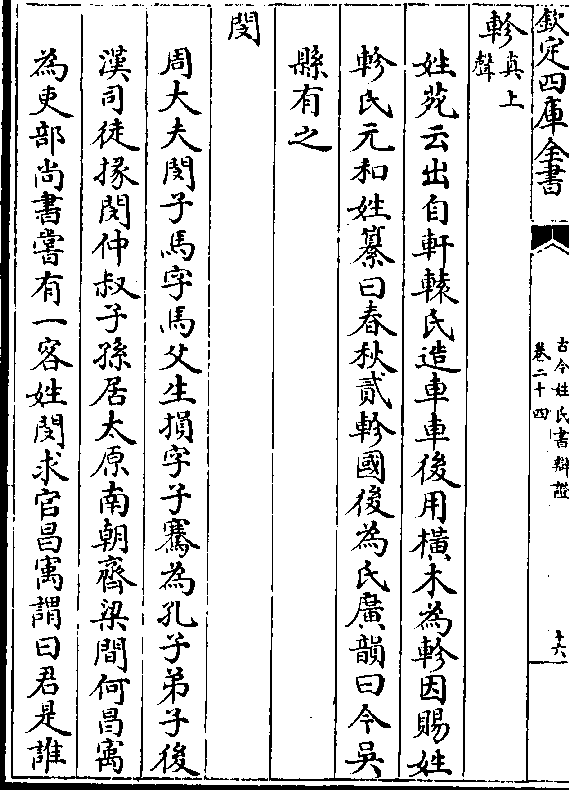 欽定四庫全書
古今姓氏書辯證
卷二十四
十六
軫真上聲
姓苑云出自軒轅氏造車車後用橫木為軫因賜姓
軫氏元和姓纂曰春秋貳軫國後為氏廣韻曰今吳
縣有之
閔
周大夫閔子馬字馬父生損字子騫為孔子弟子後
漢司徒掾閔仲叔子孫居太原南朝齊梁間何昌㝢
為吏部尚書嘗有一客姓閔求官昌㝢謂曰君是誰